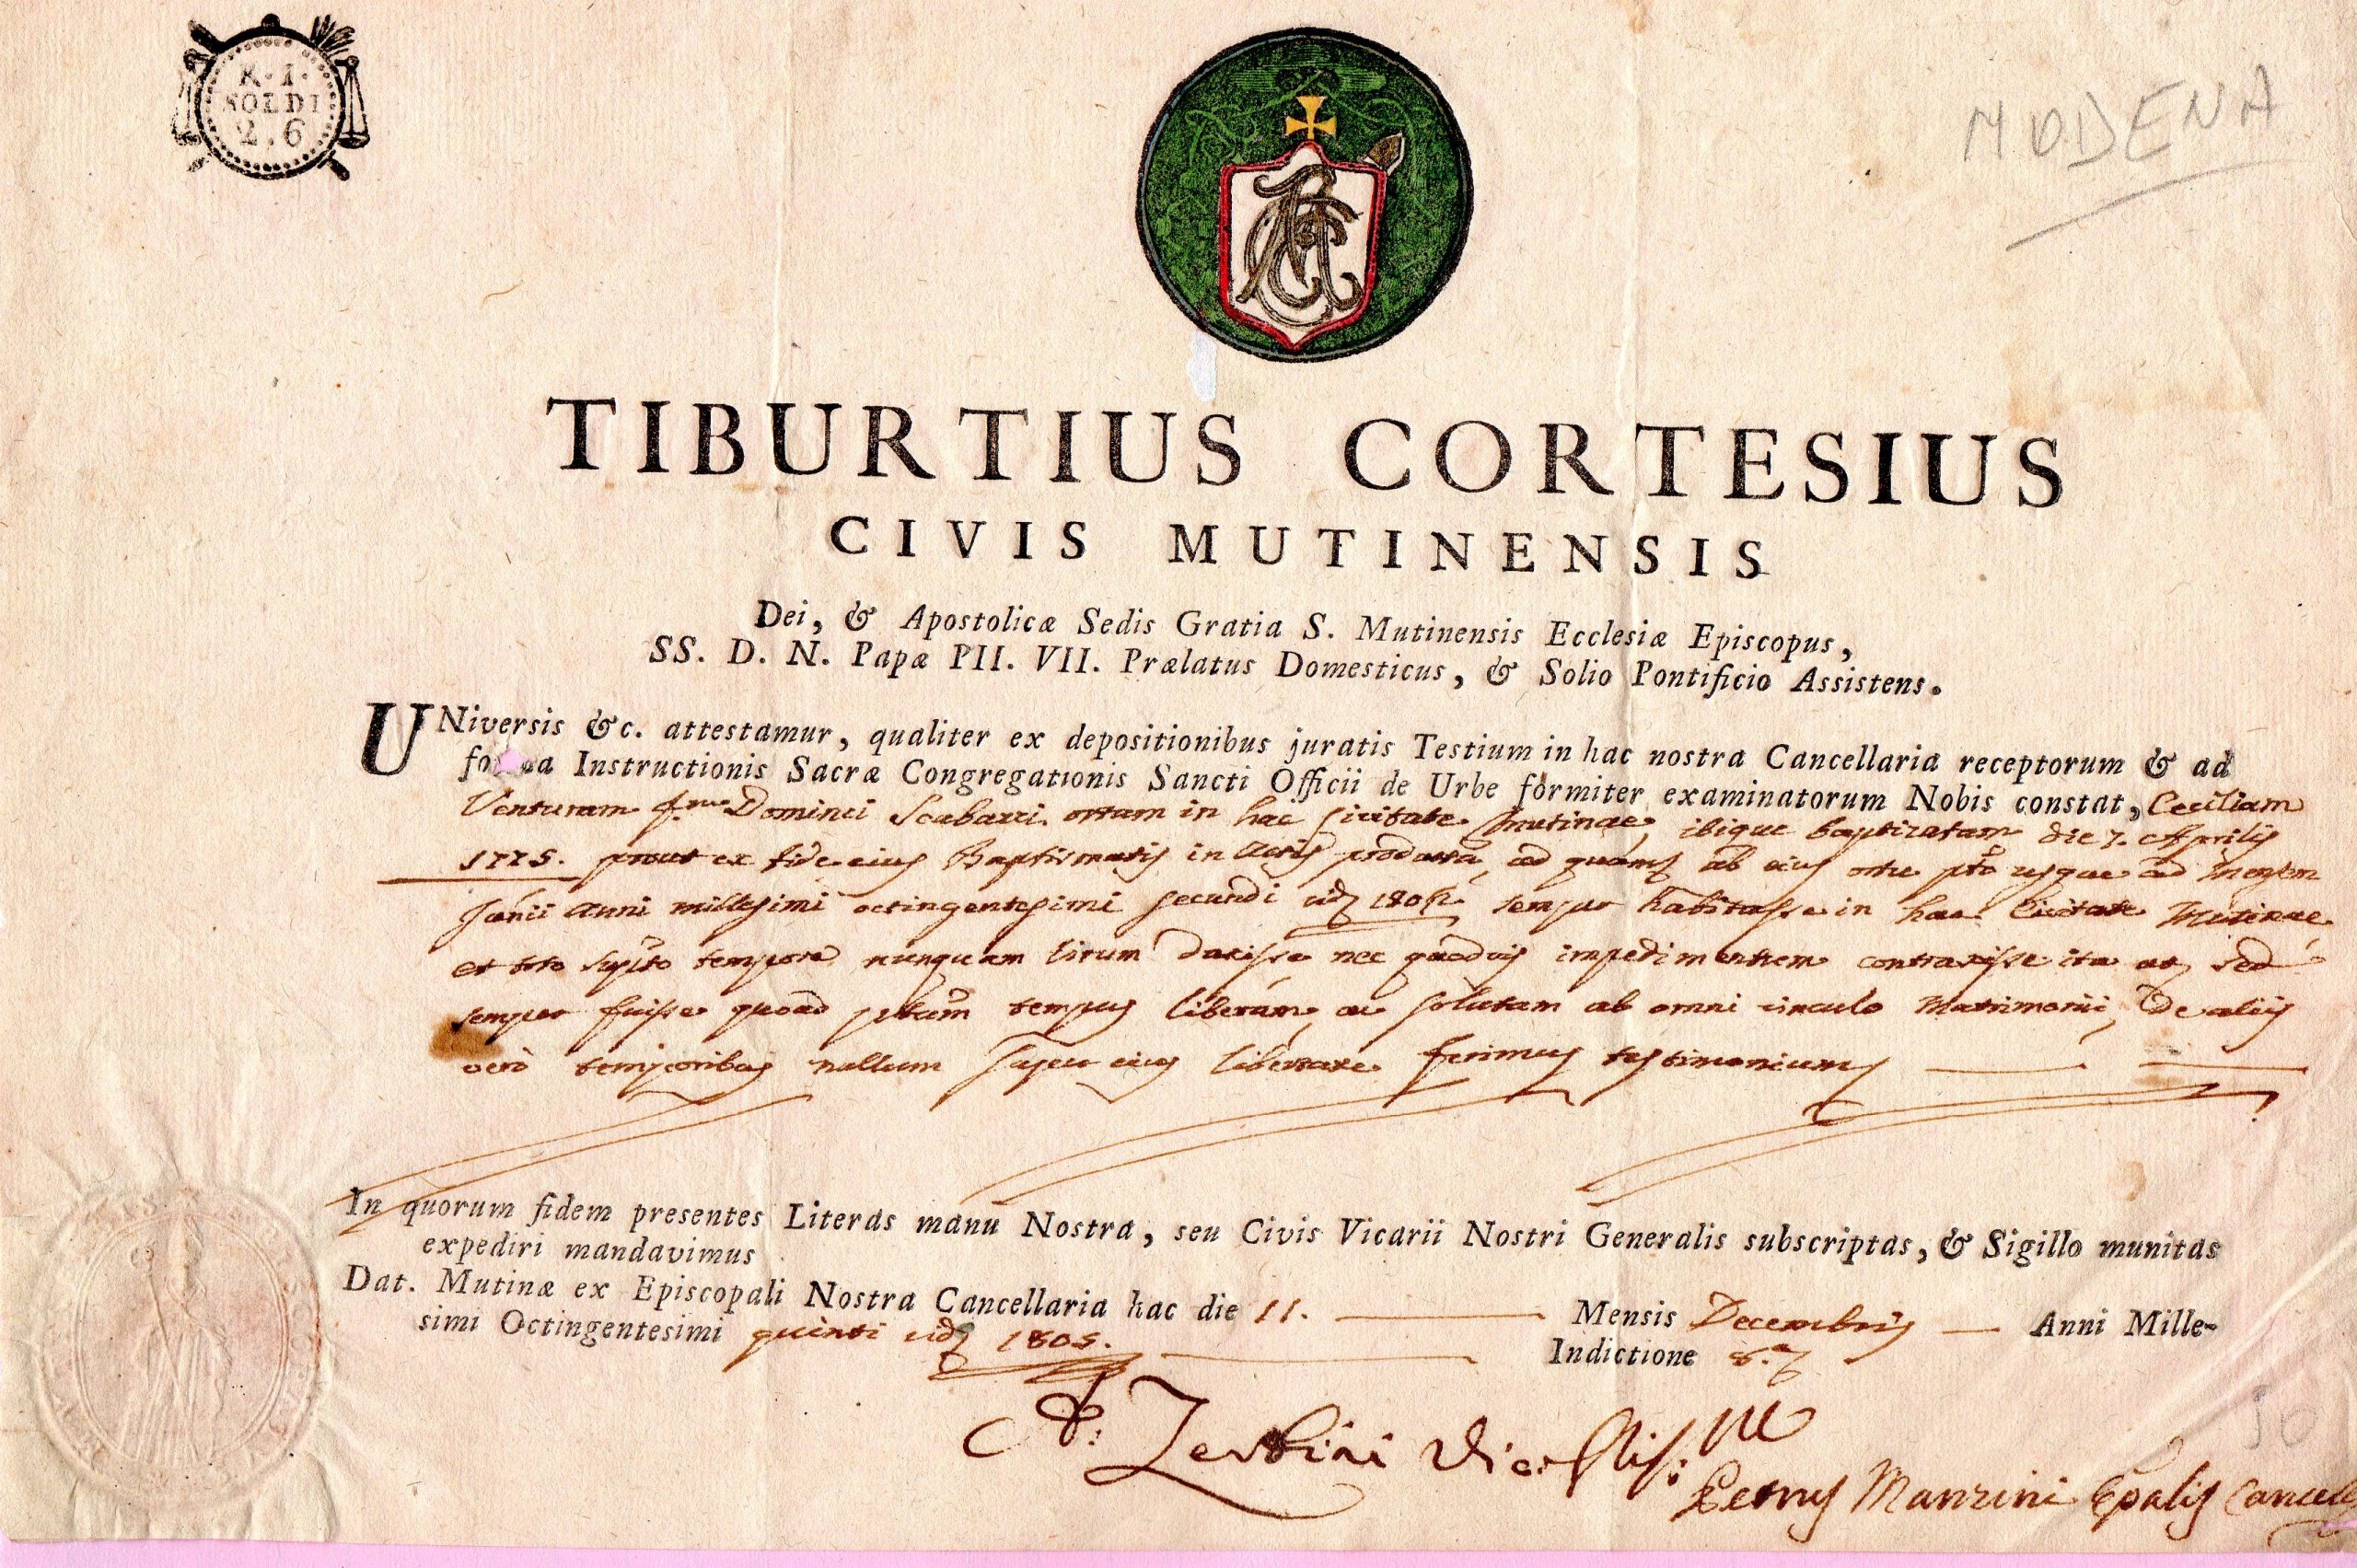 R. I.
SOLDI
2. 6
MODENA
TIBURTIUS CORTESIUS
CIVIS MUTINENSIS
Dei, & Apostolicæ Sedis Gratia S. Mutinensis Ecclesiæ Episcopus,
SS. D. N. Papæ PII. VII. Prælatus Domesticus, & Solio Pontificio Assistens.
UNiversis &c. attestamur, qualiter ex depositionibus juratis Testium in hac nostra Cancellaria receptorum & ad
Instructionis Sacræ Congregationis Sancti Officii de Urbe formiter examinatorum Nobis constat, Ceciliam
Venturam Dominici ortam in hac Civitate Mutinae, ibique baptizatam die 7. Aprilis
1775. prout ex fide eius Baptismatis in actis producta, ab eius ortu usque ad mensem
anni millesimi octingentesimi secundi semper habitasse in hac Civitate Mutinae
et toto tempore nunquam virum duxisse nec quodvis impedimentum contraxisse ita ut sed
semper fuisse quoad tempus liberam, ac solutam ab omni vinculo Matrimonii, De aliis
vero temporibus nullum super eius libertate ferimus testimonium
In quorum fidem presentes Literas manu Nostra, seu Civis Vicarii Nostri Generalis subscriptas, & Sigillo munitas
expediri mandavimus
Dat. Mutinæ ex Episcopali Nostra Cancellaria hac die 11. Mensis Decembris Anni Mille-
simi Octingentesimi quinti 1805. Indictione 8.
Zerbini
Manzini Epalis Cancell
50